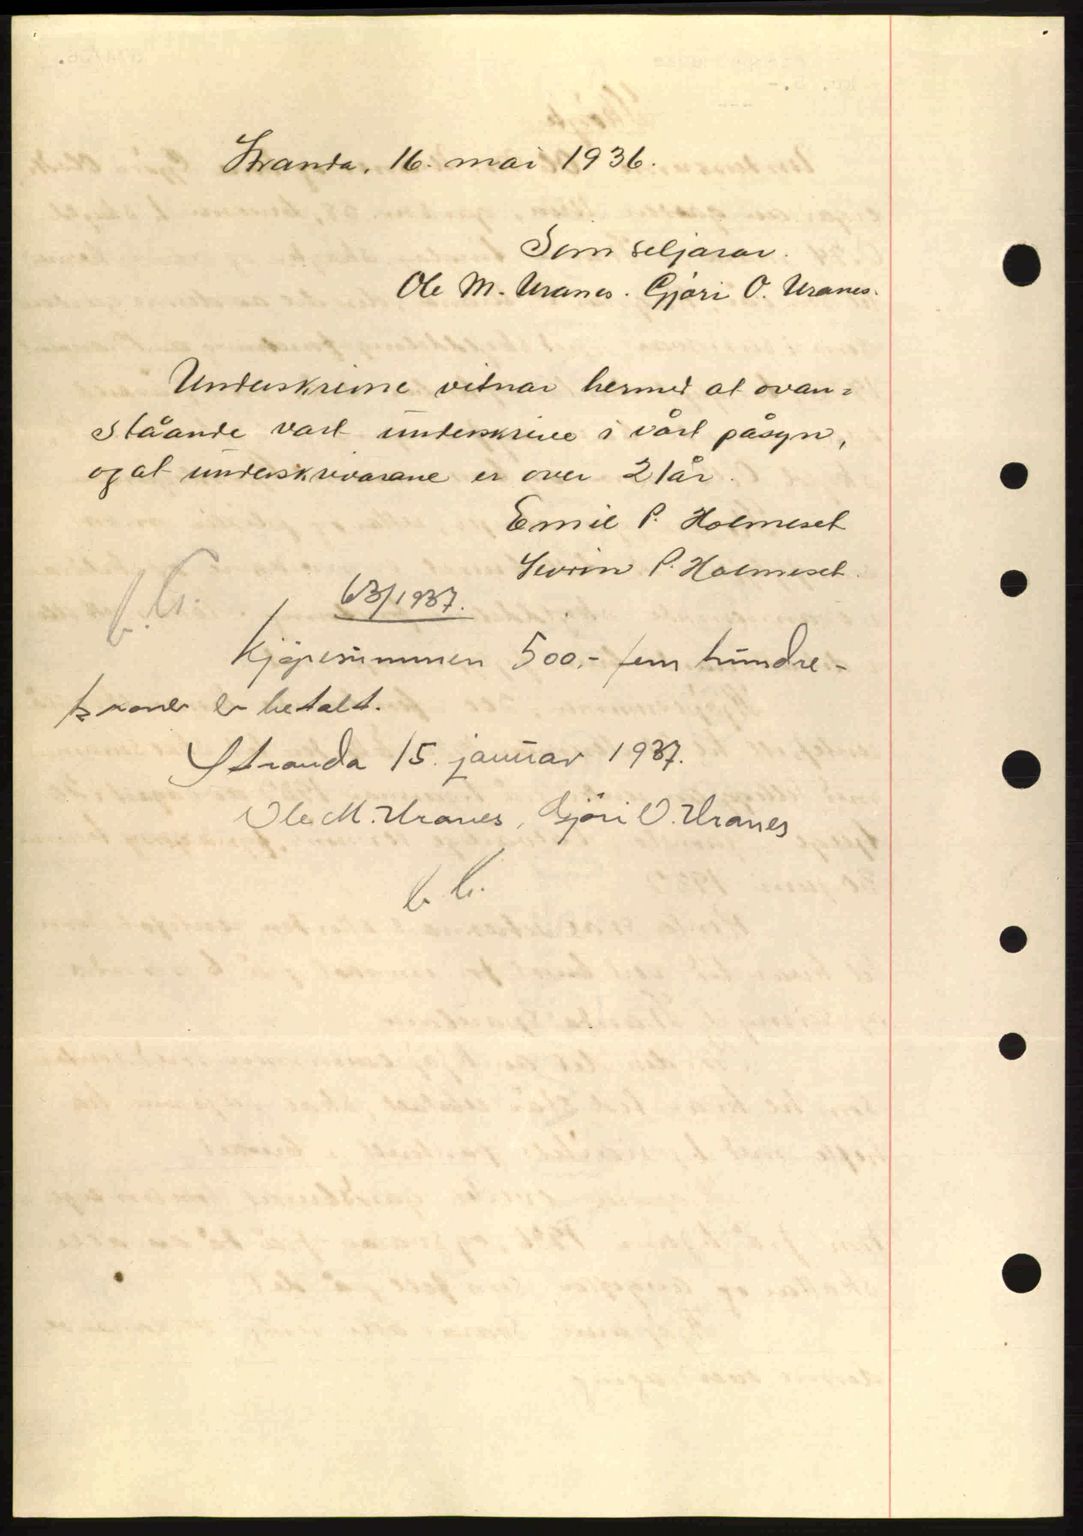 Stranda, 16. mai 1936.
Som seljarar.
Ole M. Uranes. Gjøri O. Uranes.
Underskrivne vitnar hermed at ovan=
ståande vart underskrive i vårt påsyn,
og at underskrivarane er over 21 år.
Emil P. Holmeset
Sevrin P. Holmeset.
63/1937.
Kjøpesummen 500,- fem hundre-
kroner er betalt.
Stranda 15. januar 1937.
Ole M. Uranes, Gjøri O. Uranes